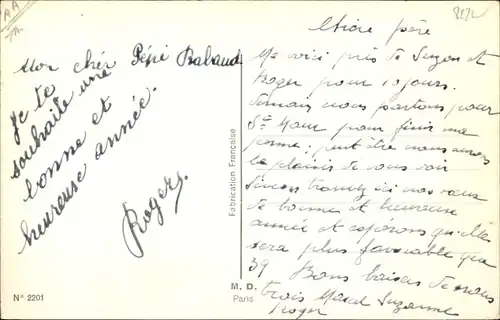 Mon cher Pépé Rabaud
Je te
souhaite une
bonne et
heureuse année.
Roger
Fabrication Française
M. D.
Paris
N° 2201
Chère père
Me voici près de Suzon et
Roger pour 10 jours.
Demain nous partons pour
St Maur pour finir ma
perme; peut être nous aurons
le plaisir de vous voir
Sinon trouvez ici nos vœux
de bonne et heureuse
année et espérons qu'elle
sera plus favorable que
39 Bons baisers de nous
trois Marcel Suzanne
Roger